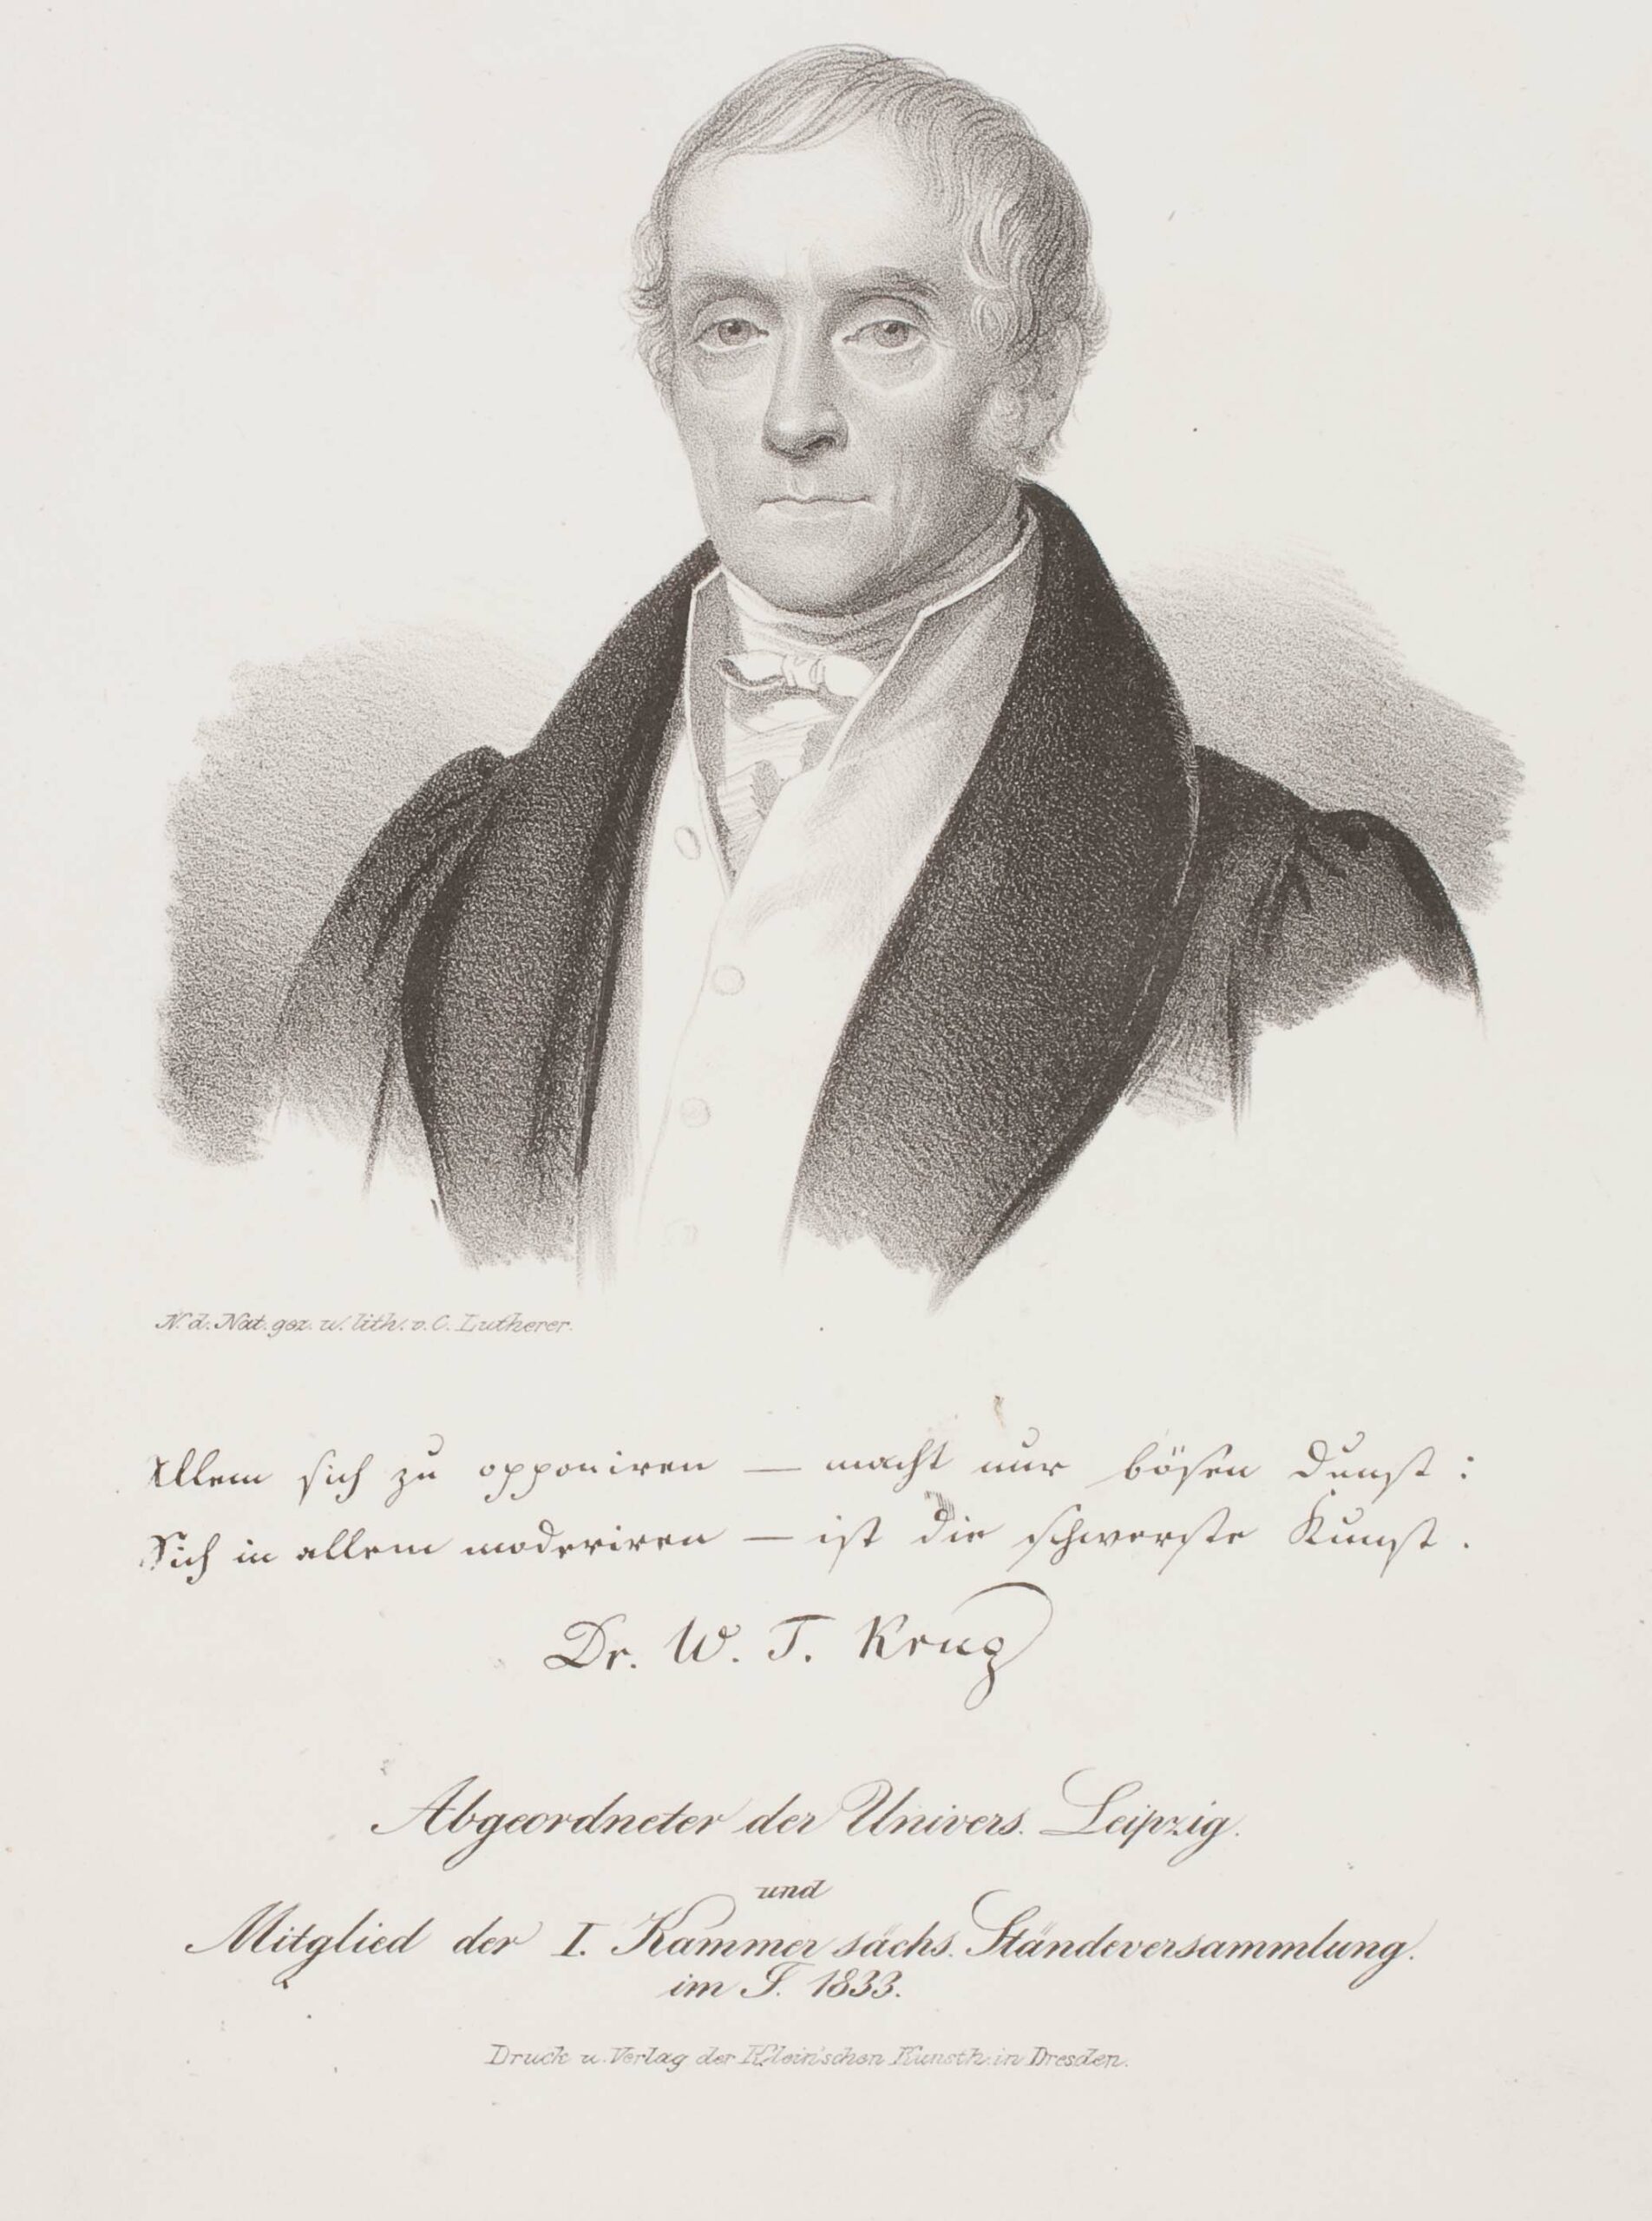 N. d. Nat. gez. u. lith. v. C. Lutherer.
Allem sich zu opponiren — macht nur bösen Dunst:
Sich in allem moderiren — ist die schwerste Kunst.
Dr. W. T. Krug
Abgeordneter der Univers. Leipzig.
und
Mitglied der I. Kammer sächs. Ständeversammlung.
im J. 1833.
Druck u. Verlag der Klein'schen Kunsth. in Dresden.